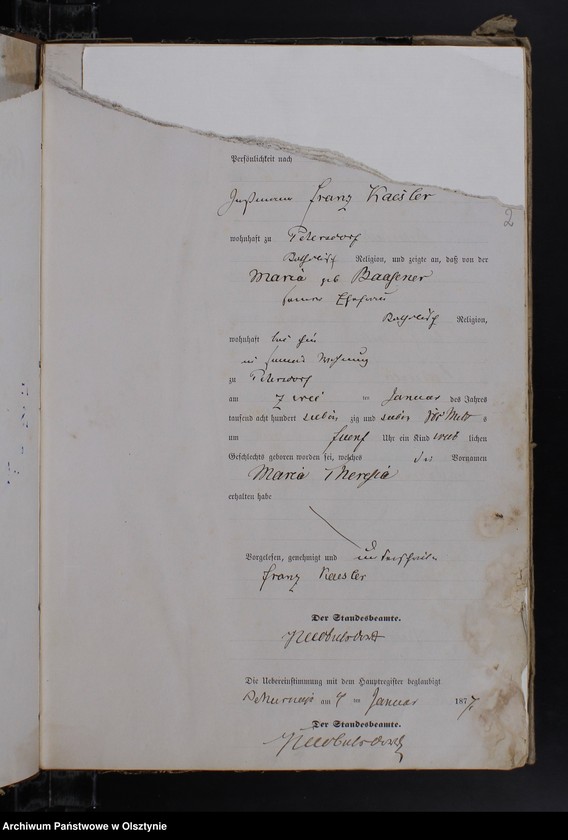 2
Persönlichkeit nach
Franz Kaesler
wohnhaft zu Petersdorf
Katholisch Religion, und zeigte an, daß von der
Maria geb Baasener
seiner Ehefrau
Katholisch Religion,
wohnhaft bei ihm
in seiner Wohnung
zu Petersdorf
am zwei ten Januar des Jahres
tausend acht hundert sieben zig und sieben Vor Mitt s
um fuenf Uhr ein Kind weib lichen
Geschlechts geboren worden sei, welches die Vornamen
Maria Theresia
erhalten habe
Vorgelesen, genehmigt und unterschrieben
Franz Kaesler
Der Standesbeamte.
Die Uebereinstimmung mit dem Hauptregister beglaubigt
am 4 ten Januar 1877
Der Standesbeamte.
Archiwum Państwowe w Olsztynie